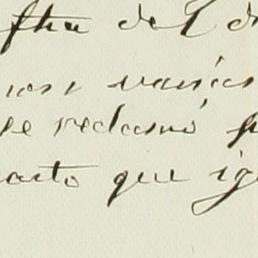 fha del d
nos, varias
se reclamó p
arto que ig